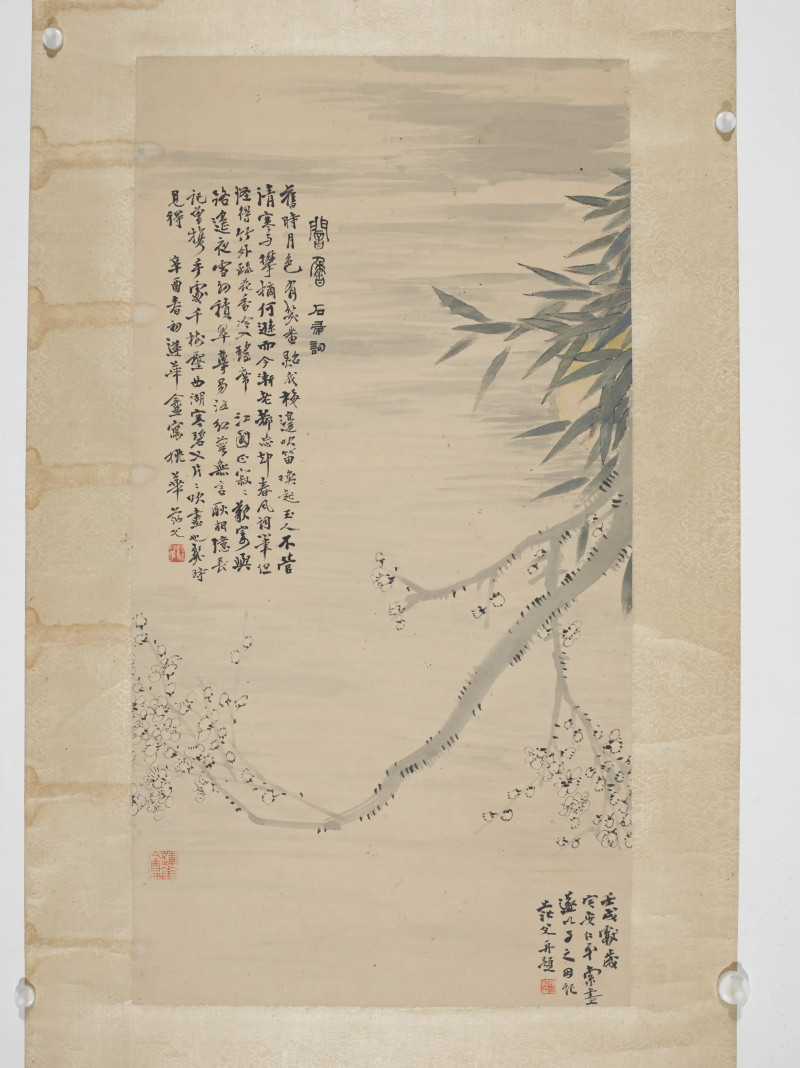 闇香 石帚詞
舊時月色算幾番照我梅邊吹笛喚起玉人不管
清寒与攀摘何遜而今漸老都忘却春風詞筆但
怪得竹外疏花香冷入瑤席 江國正寂〻歎寄與
路遙夜雪初積翠尊易泣紅萼無言耿相憶長
記曾攜手處千樹壓西湖寒碧又片〻吹盡也幾時
見得 辛酉春初蓮華盦寫 姚華茫父
壬戌獻歲
仁弟索畫
遂以予之因記
茫父再題